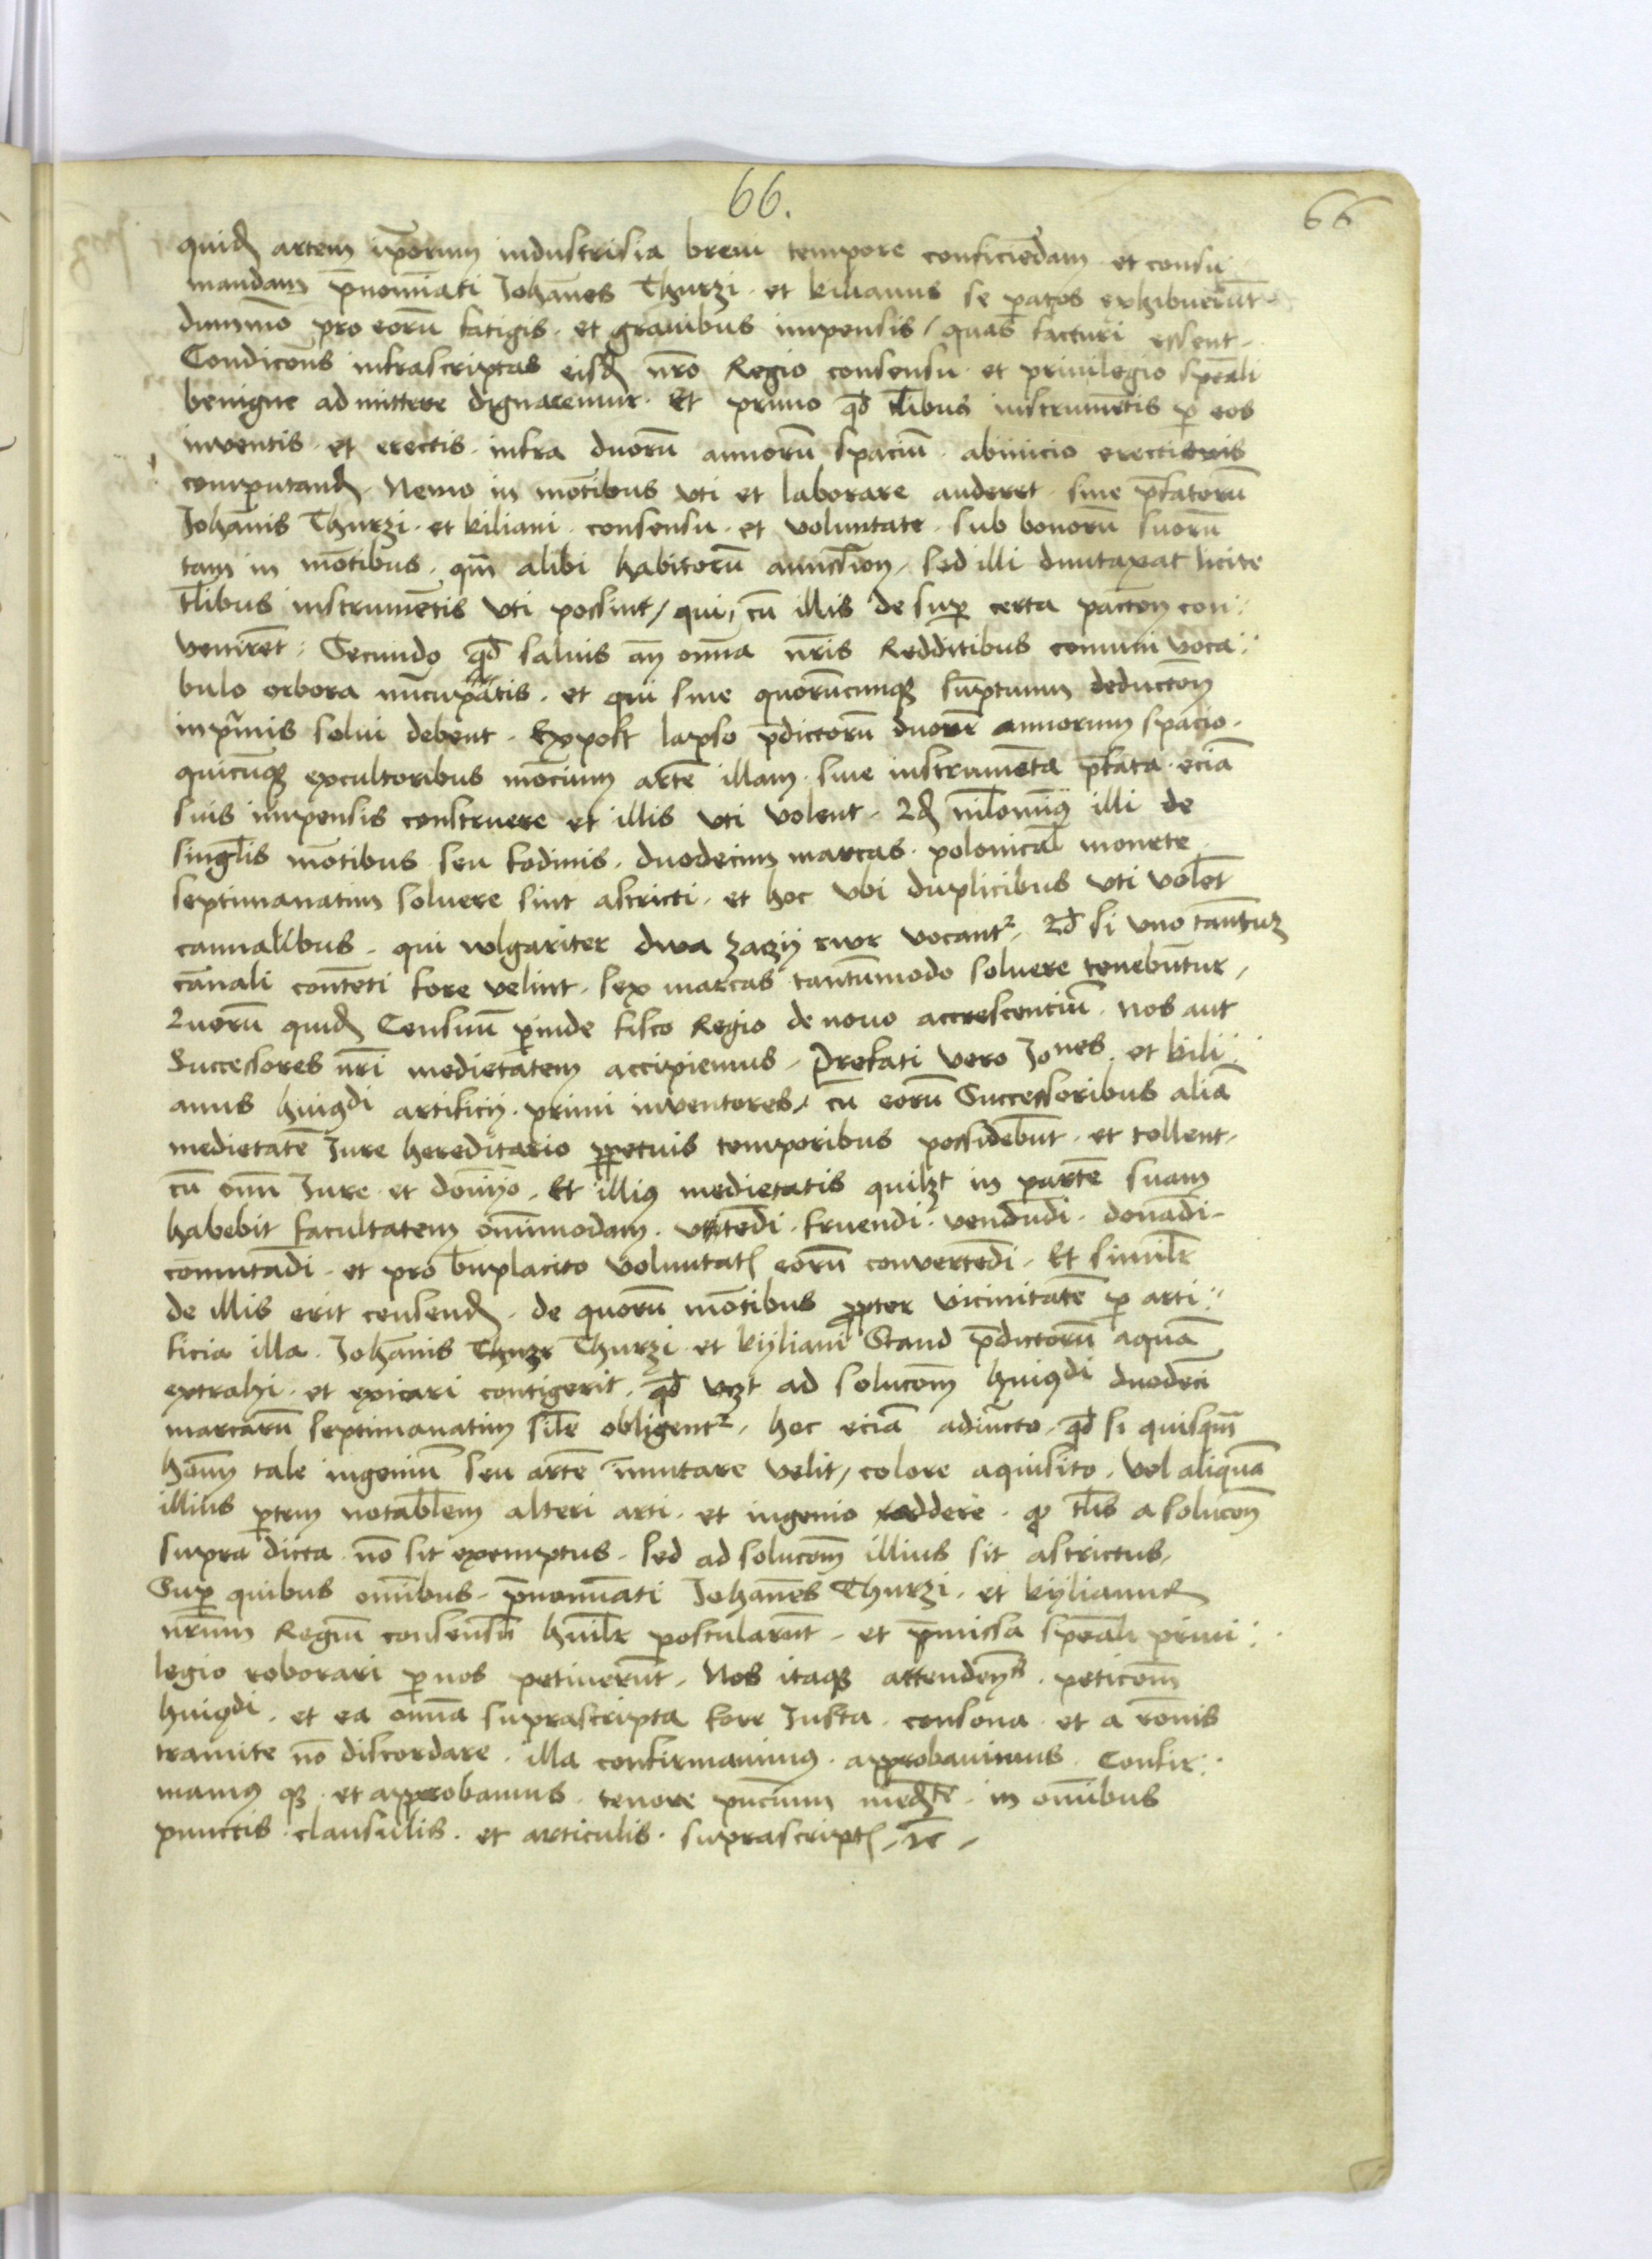 66.
66
quid artem ip̄orum industrisia breui tempore conficiēdam et consu
mandam p̄nomīati Johānes Thurzi et kilianus se paratos exhibuerūt
dummō pro eorū fatigis et grauibus impensis / quas facturi essent
Condicōnes infrascriptas eisd nr̄o Regio consensu et priuilegio spēali
benigne admittere dignaremur Et primo qd tl̄ibus instrumētis p̱ eos
inventis et erectis infra duorū annorū spaciū abinicio erectionis
computand Nemo in mōtibus vti et laborare auderet sine p̄fatorū
Johānis Thurzi et kiliani consensu et voluntate sub bonorū suorū
tam in mōtibus qm̄ alibi habitorū amissiōn sed illi dumtaxat licite
tl̄ibus instrumētis vti possint / qui cū illis de sup̱ certa pactōn con
venirēt Secundo qd saluis añ om̄ia nr̄is Redditibus comuni voca
bulo orbora nūcupātis et qui sine quorūcunq sūptuum deductōn
inp̄mis solui debent Expost lapso p̄dictorū duorū annorum spacio
quicūq excultoribus mōcium artē illam siue instrumēta p̄fata eciā
suis impensis construere et illis vti volent qd nilomīꝰ illi de
singl̄is mōtibus seu fodinis duodecim marcas polonical monete
septimanatim soluere sint astricti et hoc vbi duplicibus vti volēt
cannalibus qui wlgariter dwa zazij rur vocantr qd si vno tāntuz
cānali contēti fore velint sex marcas tantūmodo soluere tenebūtur
quorū quid Censuū p̱inde fisco Regio de nouo accrescentiū Nos aut
Successores nr̄i medietātem accipiemus Prefati vero Jones et kili
anus huiꝰdi artificij primi inventores cū eorū Successoribus aliā
medietatē Jure hereditario pp̱etuis temporibus possidebūt et tollent
cū om̄i Jure et domījo Et illiꝰ medietatis quilzt in partē suam
habebit facultatem om̄imodam vtēdi fruendi vendūdi donādi
comutādi et pro bn̄placito voluntatꝭ eorū convertēdi Et similr̄
de illis erit censend de quorū mōtibus p̱pter vicinitatē p̱ arti
ficia illa Johānis Thurzi et kyliani Stand p̄dictorū aquā
extrahi et exicari contigerit qd vtzt ad solucōm huiꝰdi duodecī
marcarū septimanatim sil̄e obligentr hoc eciā adiūcto qd si quisqm̄
hoīm tale ingeniū seu artē īmutare velit / colore aquisito vel aliquā
illius p̱tem notabl̄em alteri arti et ingenio reddere q tl̄is a solucōn
supra dicta nō sit exemptus sed ad solucōm illius sit astrictus
Sup̱ quibus om̄ibus p̄nomīati Johānes Thurzi et kylianus
nr̄um Regiū consensū humilr̄ postularūt et p̄missa spēali priui
legio roborari p̱ nos petiuerūt Nos itaq attendentes peticōm
huiꝰdi et ea om̄ia suprascripta fore Justa consona et a rōnis
tramite nō discordare illa confirmauimꝰ approbauimus Confir
mamꝰ q et approbamus tenore pn̄cium mediāte in om̄ibus
punctis clausulis et articulis suprascriptꝭ ꝛc